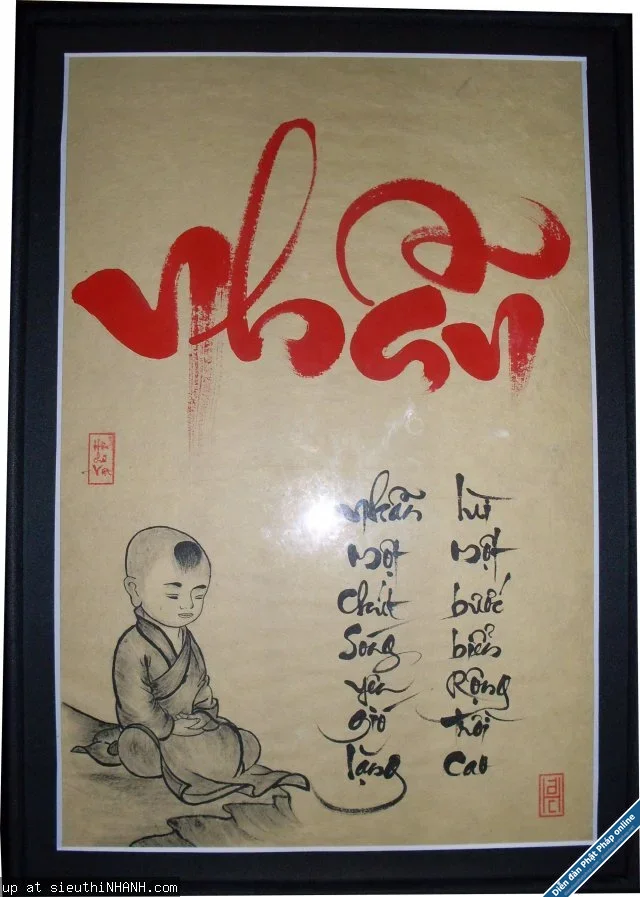 nhẫn
nhẫn một chút sóng yên gió lặng
lùi một bước biển Rộng trời cao
Diễn đàn Phật Pháp online
up at sieuthiNHANH.com